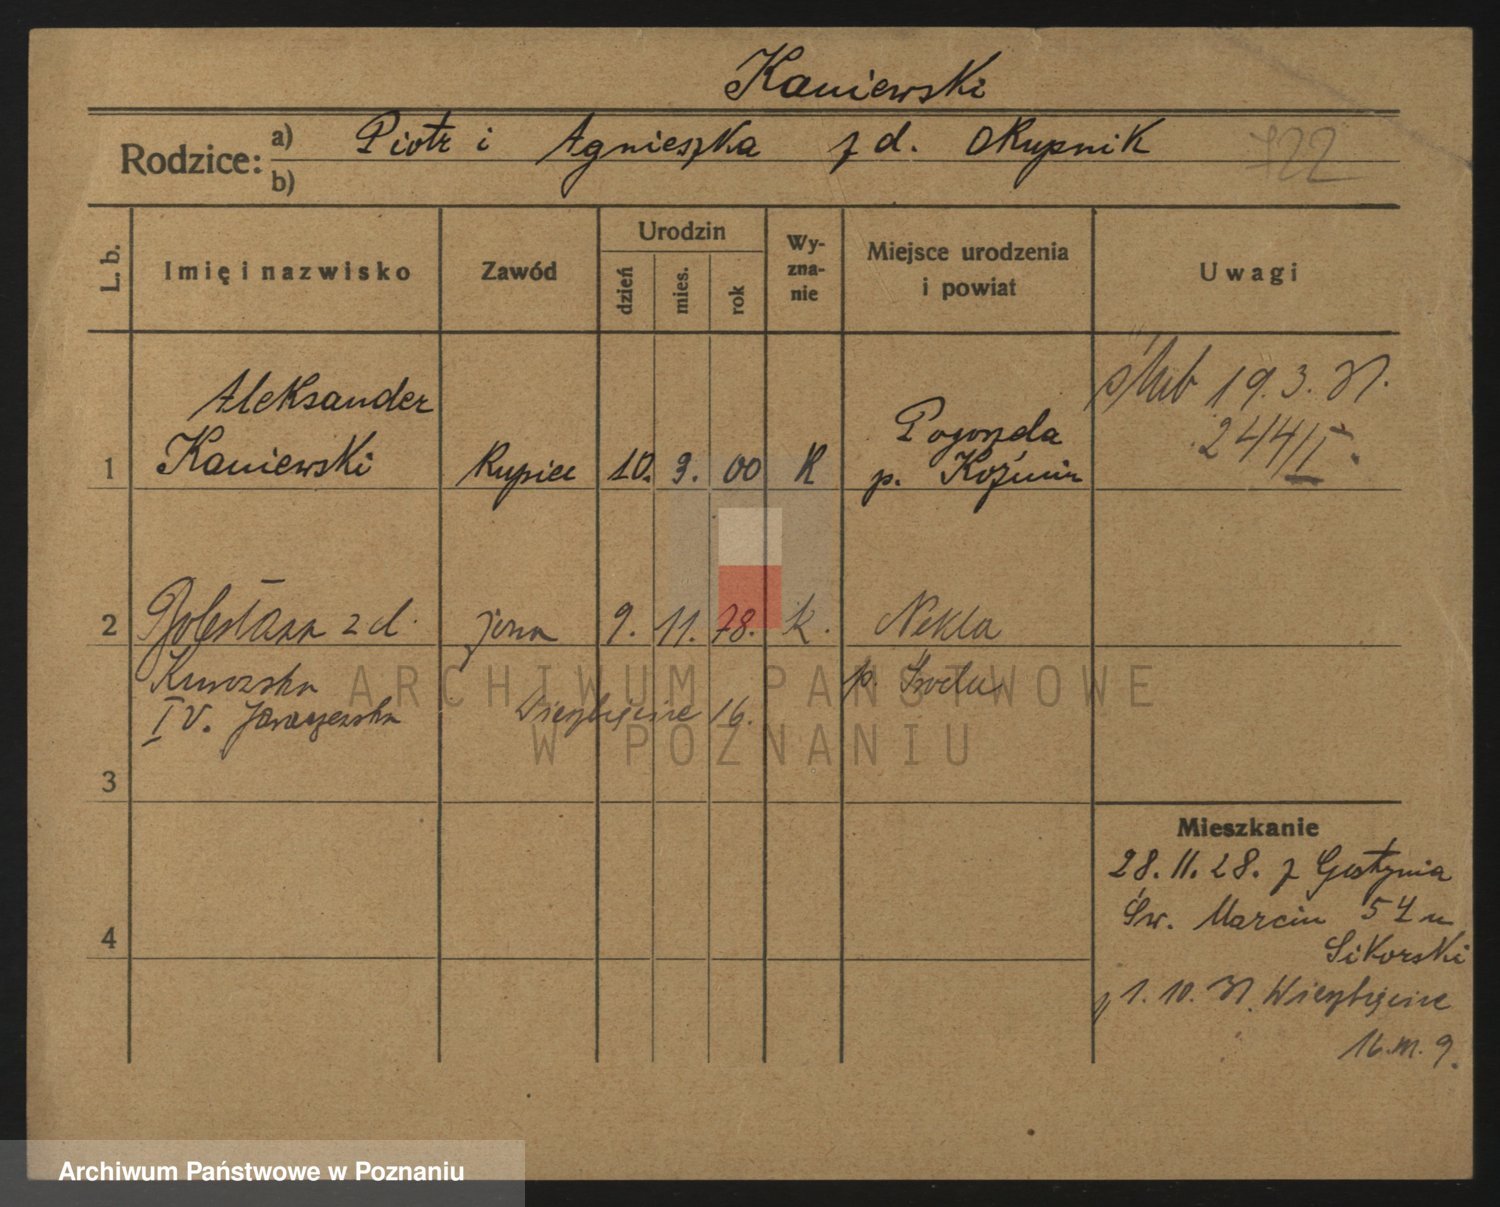 Kaniewski
Rodzice: a) Piotr i Agnieszka z d. Skupnik
b)
722
L. b.
Imię i nazwisko
Zawód
Urodzin
dzień
mies.
rok
Wy-
zna-
nie
Miejsce urodzenia
i powiat
Uwagi
Aleksander
1 Kaniewski kupiec 10. 9. 00 K
Pogorzela
p. Koźmin
ślub 19. 3. 31.
244/I.
2 Bolesława z d. żona 9. 11. 78. k. Nekla
p. Środa
IV. Jaraczewska Wierzbięcice 16.
3
4
Mieszkanie
28. 11. 28. z Gostynia
Św. Marcin 57 u
Sikorski
1. 10. 31. Wierzbięcice
16. m. 9.
ARCHIWUM PAŃSTWOWE
W POZNANIU
Archiwum Państwowe w Poznaniu